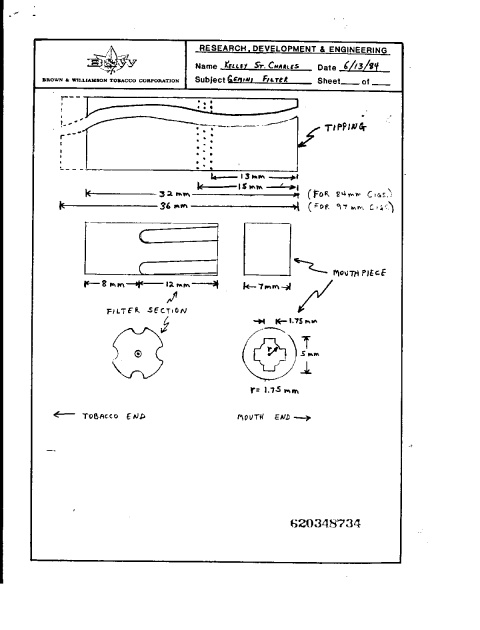 B&W
BROWN & WILLIAMSON TOBACCO CORPORATION
RESEARCH, DEVELOPMENT & ENGINEERING
Name KELLEY ST. CHARLES Date 6/13/84
Subject GEMINI FILTER Sheet___ of ___
TIPPING
13mm
15mm
32mm (FOR 84mm CIGS.)
36mm (FOR 97mm CIGS.)
8mm 12mm 7mm
MOUTHPIECE
FILTER SECTION
1.75mm
r
5mm
r= 1.75mm
TOBACCO END MOUTH END
620348734